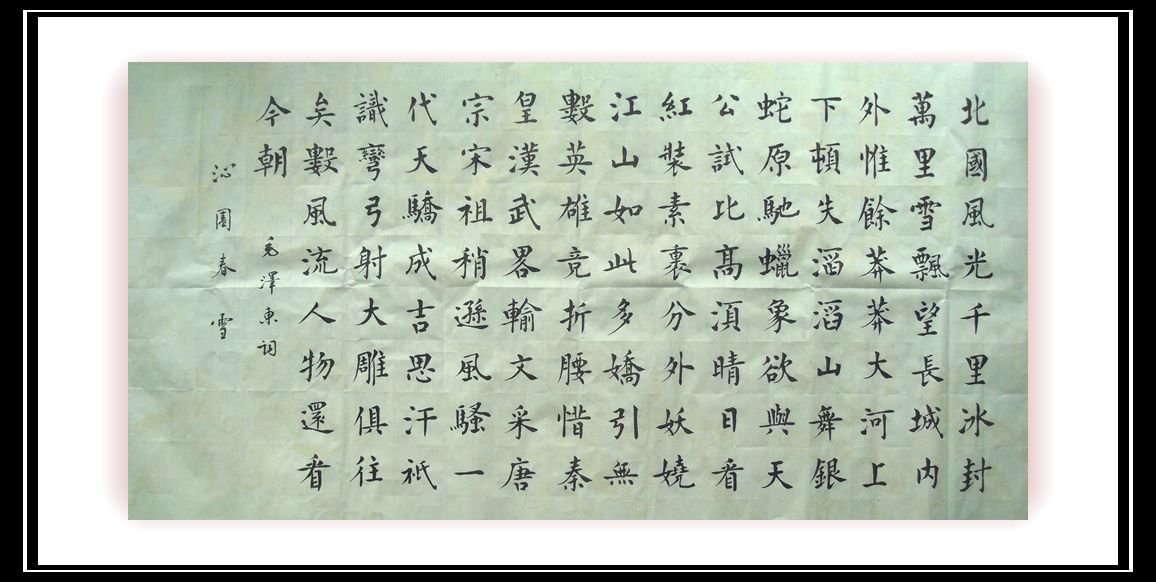 北國風光千里冰封
萬里雪飄望長城内
外惟餘莽莽大河上
下頓失滔滔山舞銀
蛇原馳蠟象欲與天
公試比髙湏晴日看
紅裝素裹分外妖嬈
江山如此多嬌引無
數英雄竞折腰惜秦
皇漢武畧輸文采唐
宗宋祖稍遜風騷一
代天驕成吉思汗祇
識彎弓射大雕俱往
矣數風流人物還看
今朝
毛澤東词
沁園春雪